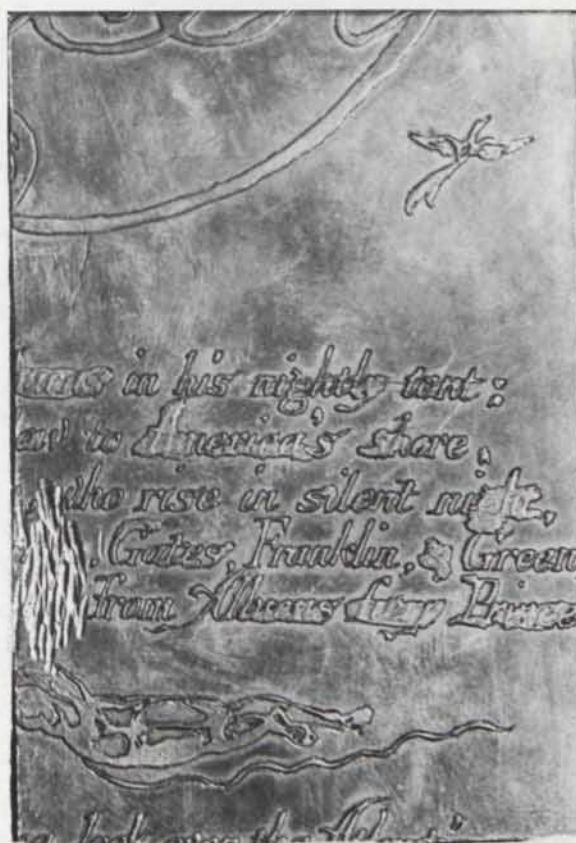 burns in his nightly tent:
to America's shore;
who rise in silent night,
Gates, Franklin, & Green
from Albions fiery Prince
look over the